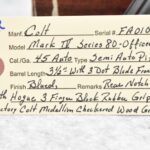 Make Colt Serial # FA010
Model Mark IV Series 80-Officer
Cal./Ga. 45 Auto Type Semi Auto Pi
Barrel Length 3½" With 3 Dot Blade Fron
Finish Blued Rear Notch
th Hogue 3 Finger Black Rubber Grip
ctory Colt Medallion Checkered Wood G